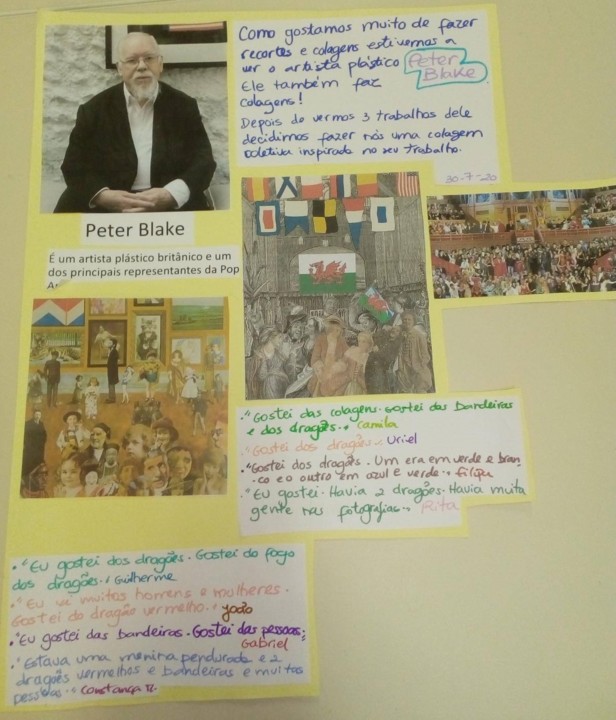 Como gostamos muito de fazer
recortes e colagens estivemos a
ver o artista plástico Peter
Blake
Ele também faz
colagens!
Depois de vermos 3 trabalhos dele
decidimos fazer nós uma colagem
coletiva inspirada no seu trabalho.
30-7-20
Peter Blake
É um artista plástico britânico e um
dos principais representantes da Pop
• "Gostei das colagens. Gostei das bandeiras
e dos dragões." Camila
• "Gostei dos dragões." Uriel
• "Gostei dos dragões. Um era em verde e bran
co e o outro em azul e verde."
• "Eu gostei. Havia 2 dragões. Havia muita
gente nas fotografias." Rita
• "Eu gostei dos dragões. Gostei do fogo
dos dragões." Guilherme
• "Eu vi muitos homens e mulheres.
Gostei do dragão vermelho." João
• "Eu gostei das bandeiras. Gostei das pessoas."
Gabriel
• "Estava uma menina pendurada e 2
dragões vermelhos e bandeiras e muitas
pessoas." Constança